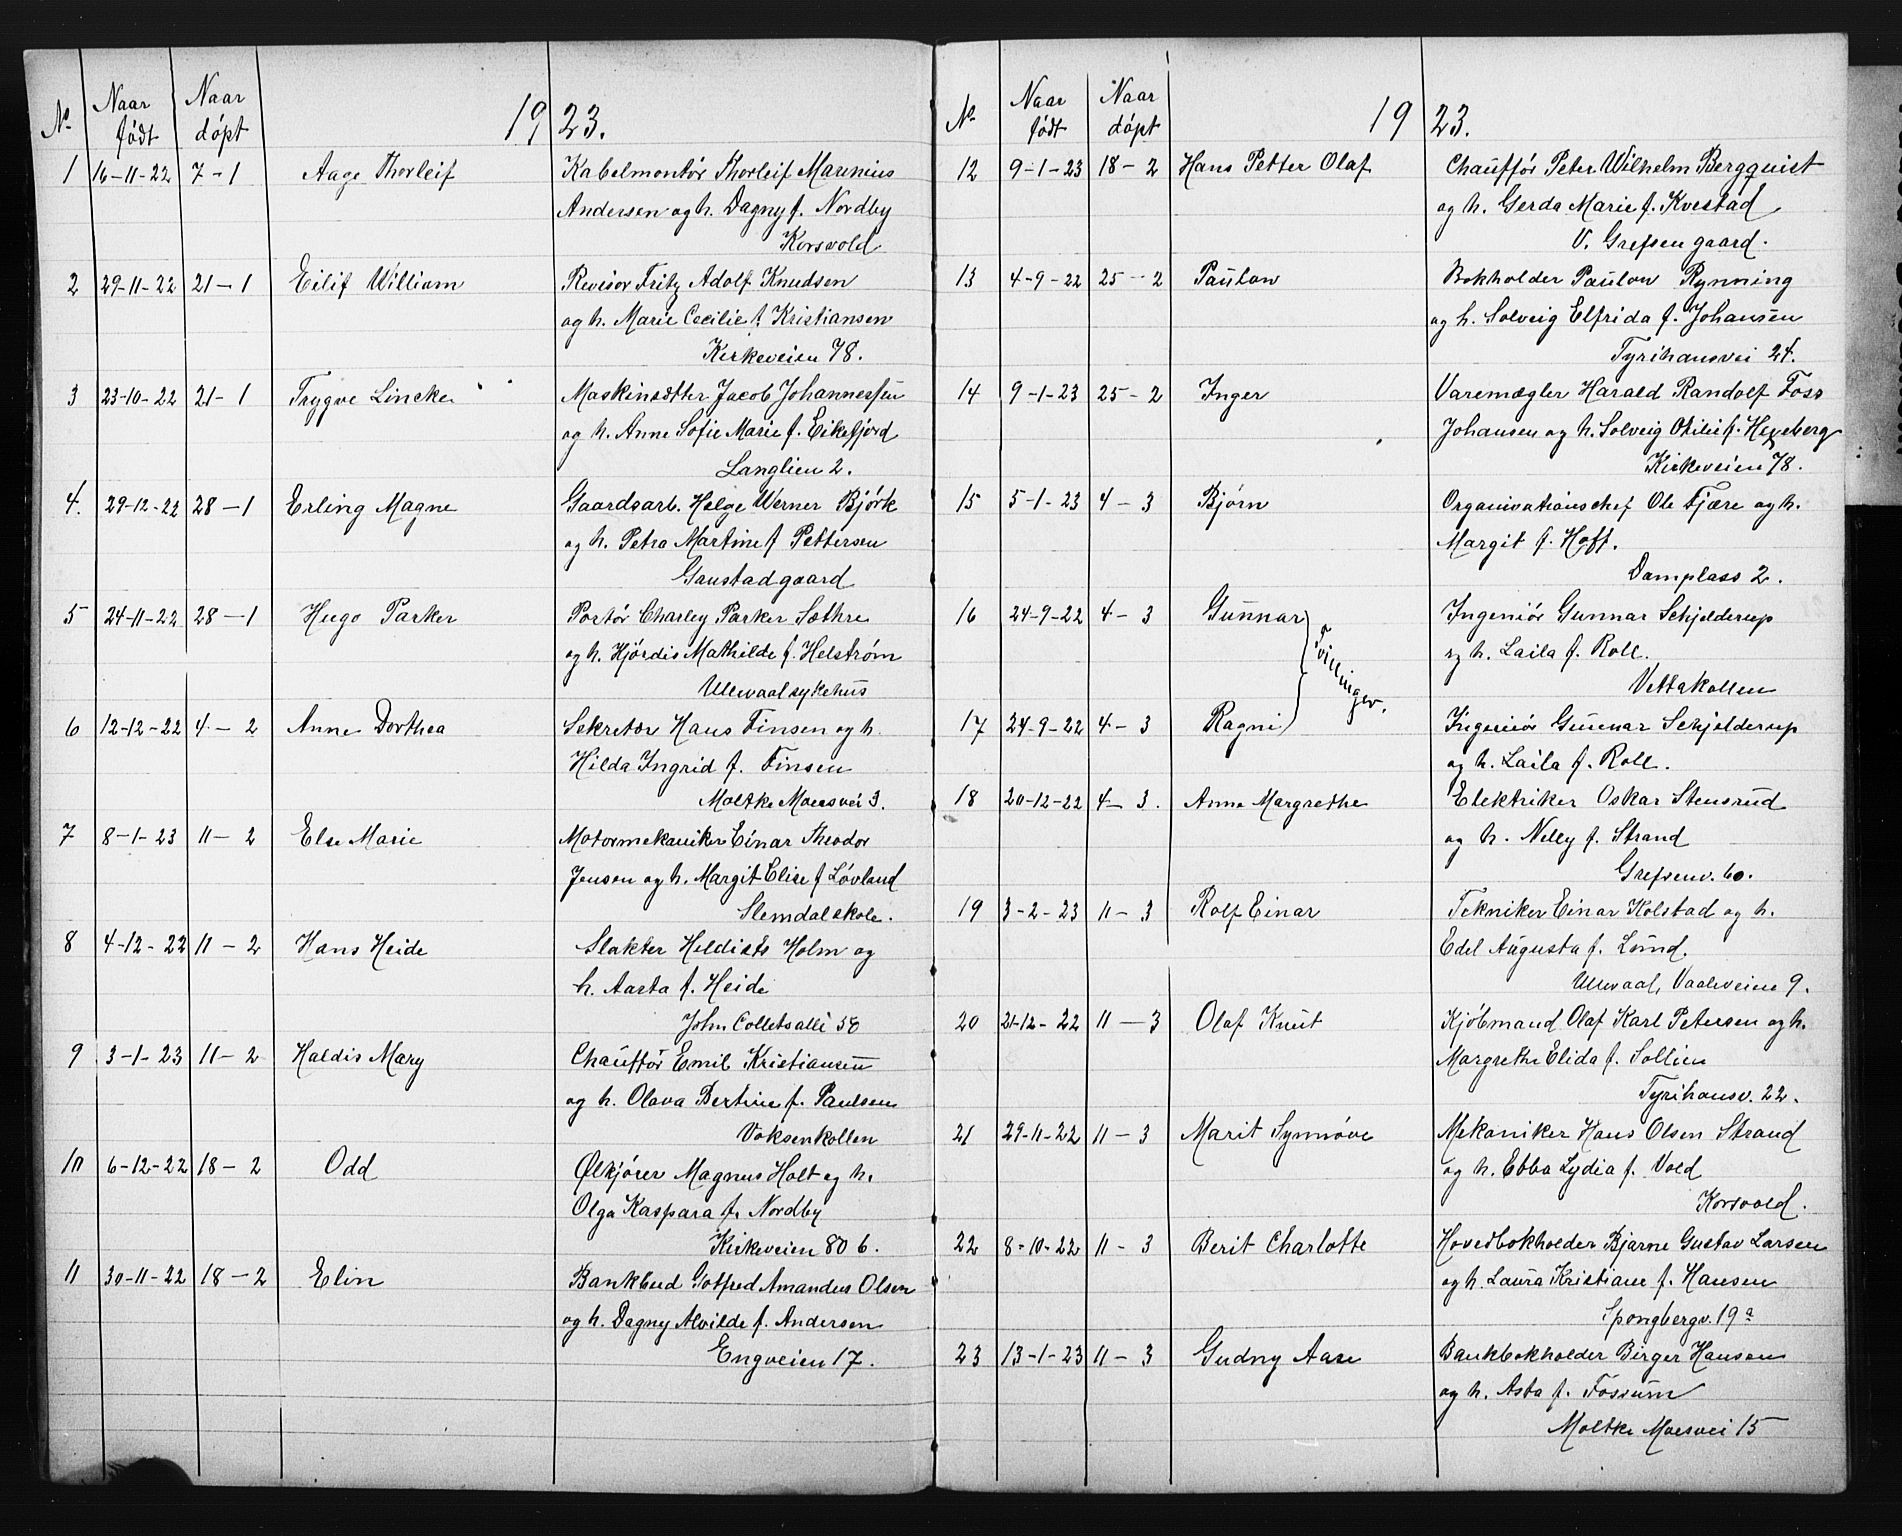 No Naar født Naar døpt 1923.
1 16-11-22 7-1 Aage Thorleif Kabelmontør Thorleif Marenius
Andersen og h. Dagny f. Nordby
Korsvold
2 29-11-22 21-1 Eilif William Revisor Fritz Adolf Knudsen
og h. Marie Cecilie f. Kristiansen
Kirkeveien 78.
3 23-10-22 21-1 Trygve Lincke Maskinsætter Jacob Johannessen
og h. Anne Sofie Marie f. Eikefjord
Langlien 2.
4. 29-12-22 28-1 Erling Magne Gaardsarb. Helge Werner Bjørk
og h. Petra Martine f Pettersen
Gaustad gaard
5 24-11-22 28-1 Hugo Parker Portør Charley Parker Sæthre
og h. Hjørdis Mathilde f. Helstrøm
Ullevaal sykehus
6 12-12-22 4-2 Anne Dorthea Sekretær Hans Finsen og h.
Hilda Ingrid f. Finsen
Moltke Moesvei 3.
7 8-1-23 11-2 Else Marie Motormekaniker Einar Theodor
Jensen og h. Margit Elise f Løvland
Slemdal skole.
8 4-12-22 11-2 Hans Heide Slakter Holm og
h. Aasta f. Heide
John Colletsallé 58
9 3-1-23 11-2 Haldis Mary Chauffør Emil Kristiansen
og h. Olava Bertine f. Paulsen
Voksenkollen
10 6-12-22 18-2 Odd Ølkjører Magnus Holt og h.
Olga Kaspara f. Nordby
Kirkeveien 80 b.
11 30-11-22 18-2 Elin Bankbud Gotfred Amandus Olsen
og h. Dagny Alvilde f. Andersen
Engveien 17.
No Naar født Naar døpt 1923.
12 9-1-23 18-2 Hans Petter Olaf Chauffør Peter Wilhelm Bergquist
og h. Gerda Marie f. Kvestad
V. Grefsen gaard.
13 4-9-22 25-2 Paulow Bokholder Paulow Rynning
og h. Solveig Elfrida f. Johansen
Tyrihansvei 24.
14 9-1-23 25-2 Inger Varemægler Harald Randolf Foss
Johansen og h. Solveig Otilie f. Hexeberg
Kirkeveien 78.
15 5-1-23 4-3 Bjørn Organisationschef Ole Fjære og h.
Margit f. Hoft.
Damplass 2.
16 24-9-22 4-3 Gunnar Ingeniør Gunnar Schjelderup
og h. Laila f. Roll.
Vettakollen
Tvillinger.
17 24-9-22 4-3 Ragni Ingeniør Gunnar Schjelderup
og h. Laila f. Roll.
18 20-12-22 4-3. Anna Margrethe Elektriker Oskar Stensrud
og h. Nelly f. Strand
Grefsenv. 60.
19 3-2-23 11-3 Rolf Einar Tekniker Einar Kolstad og h.
Edel Augusta f. Lund.
Ullevaal, Vaaleveien 9.
20 21-12-22 11-3 Olaf Knut Kjøbmand Olaf Karl Petersen og h.
Margrethe Elida f. Sollien
Tyrihansv. 22.
21 29-11-22 11-3 Marit Synnøve Mekaniker Hans Olsen Strand
og h. Ebba Lydia f. Vold
Korsvold.
22 8-10-22 11-3 Berit Charlotte Hovedbokholder Bjarne Gustav Larsen
og h. Laura Kristiane f. Hansen
Spongbergv. 19a
23 13-1-23 11-3 Gudny Aase Bankbokholder Birger Hansen
og h. Asta f. Fossum
Moltke Moesvei 15